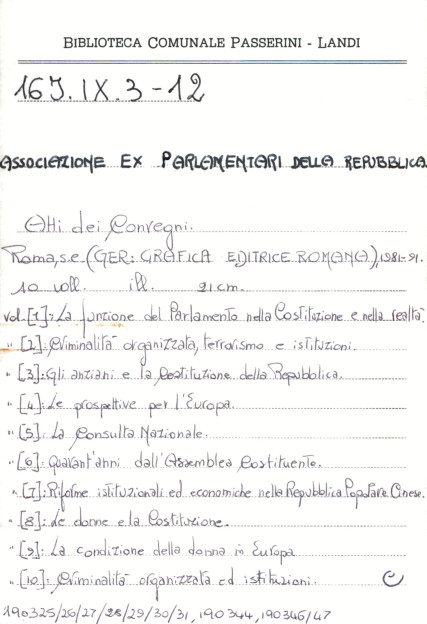 BIBLIOTECA COMUNALE PASSERINI - LANDI
16J.IX.3-12
ASSOCIAZIONE EX PARLAMENTARI DELLA REPUBBLICA
Atti dei Convegni.
Roma, s.e. (GER: GRAFICA EDITRICE ROMANA), 1981-91.
10 voll. ill. 21 cm.
vol. [1]: La funzione del Parlamento nella Costituzione e nella realtà.
" [2]: Criminalità organizzata, terrorismo e istituzioni.
" [3]: Gli anziani e la Costituzione della Repubblica.
" [4]: Le prospettive per l'Europa.
" [5]: La Consulta Nazionale.
" [6]: Quarant'anni dall'Assemblea Costituente.
" [7]: Riforme istituzionali ed economiche nella Repubblica Popolare Cinese.
" [8]: Le donne e la Costituzione.
" [9]: La condizione della donna in Europa
" [10]: Criminalità organizzata ed istituzioni. C
190325/26/27/28/29/30/31, 190344, 190346/47